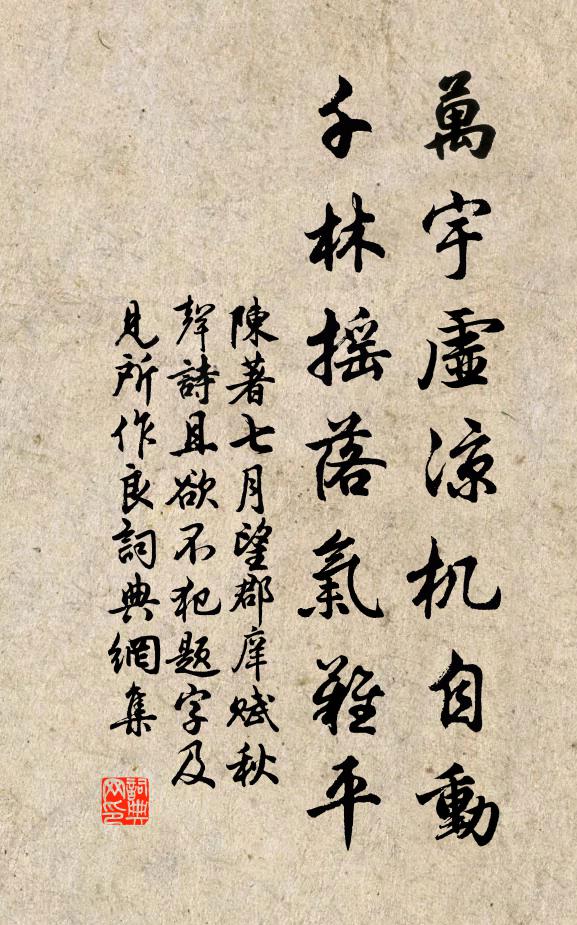 萬宇虛凉机自動
千林摇落氣難平
陳著七月望郡庠賦秋
聲詩且欲不犯題字及
見所作良詞典網集
詞典网印